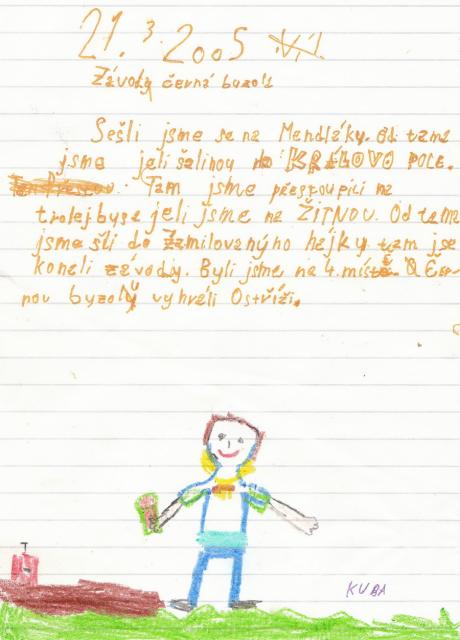 21. 3. 2005
Závody černá buzola
Sešli jsme se na Mendláky. Od tama
jsme jeli šalinou do KRÁLOVO POLE.
Tam jsme přestoupili na
trolejbys a jeli jsme na ŽITNOU. Od tama
jsme šli do Zamilovanýho hájky tam jse
konali závody. Byli jsme na 4. místě. O Čer-
nou byzolŷ vyhráli Ostříži.
KUBA